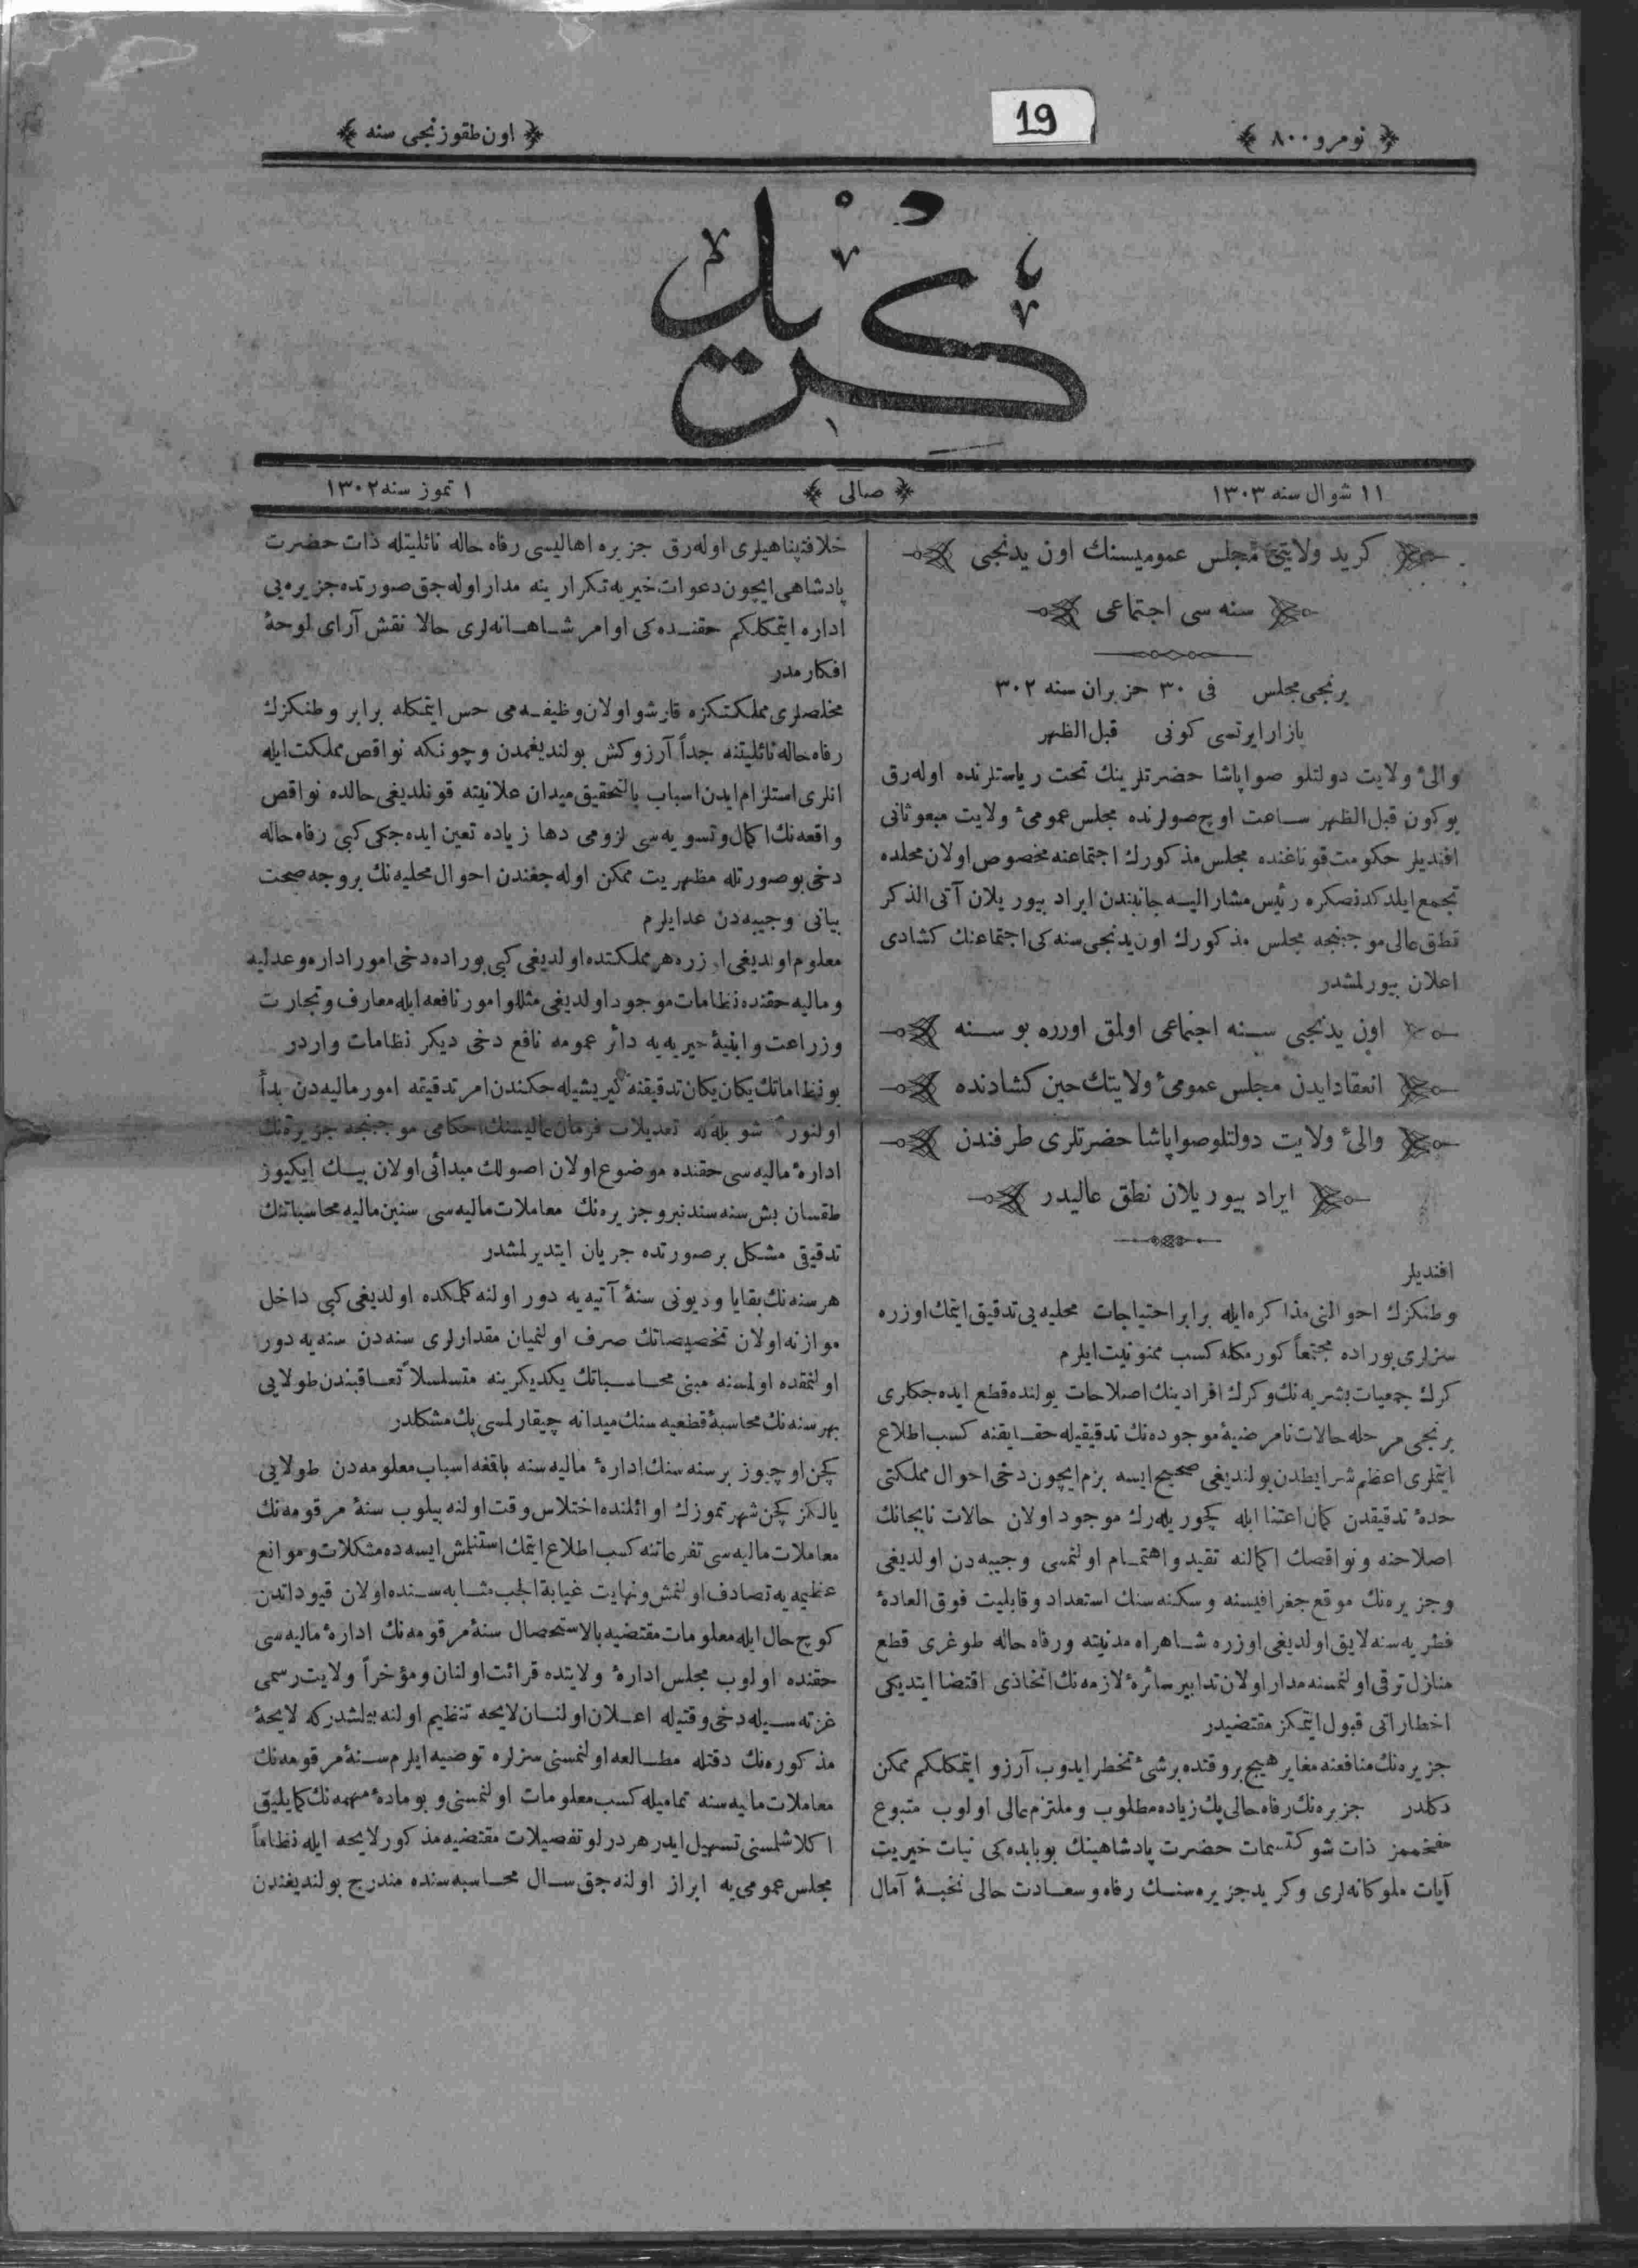 نومرو ٨٠٠
19
اون طقوزنجی سنه
كريد
١١ شوال سنه ١٣٠٣
صالی
١ تموز سنه ١٣٠٢
كريد ولايتی مجلس عموميسنك اون يدنجی
سنه سی اجتماعی
برنجی مجلس فی ٣٠ حزيران سنه ٣٠٢
بازار ايرتسی كونی قبل الظهر
والیٔ ولايت دولتلو صوا پاشا حضرتلرينك تحت رياستلرنده اوله رق
بوكون قبل الظهر ساعت اوچ صولرنده مجلس عمومیٔ ولايت مبعوثانی
افنديلر حكومت قوناغنده مجلس مذكورك اجتماعنه مخصوص اولان محلده
تجمع ايلدكدنصكره رئيس مشار اليه جانبندن ايراد بيوريلان آتی الذكر
نطق عالی موجبنجه مجلس مذكورك اون يدنجی سنه كی اجتماعنك كشادی
اعلان بيورلمشدر
اون يدنجی سنه اجتماعی اولمق اوزره بو سنه
انعقاد ايدن مجلس عمومیٔ ولايتك حين كشادنده
والیٔ ولايت دولتلو صوا پاشا حضرتلری طرفندن
ايراد بيوريلان نطق عاليدر
افنديلر
وطنكزك احوالنی مذاكره ايله برابر احتياجات محليه يی تدقيق ايتمك اوزره
سزلری بوراده مجتمعاً كورمكله كسب ممنونيت ايلرم
كرك جمعيات بشريه نك وكرك افرادينك اصلاحات يولنده قطع ايده جكلری
برنجی مرحله حالات نامرضيهٔ موجوده نك تدقيقيله حقايقنه كسب اطلاع
ايتملری اعظم شرايطدن بولنديغی صحيح ايسه بزم ايچون دخی احوال مملكتی
حدهٔ تدقيقدن كمال اعتنا ايله كچوريله رك موجود اولان حالات نابجانك
اصلاحنه ونواقصك اكمالنه تقيد واهتمام اولنمسی وجيبه دن اولديغی
وجزيره نك موقع جغرافيسنه وسكنه سنك استعداد وقابليت فوق العادهٔ
فطريه سنه لايق اولديغی اوزره شاهراه مدنيته ورفاه حاله طوغری قطع
منازل ترقی اولنمسنه مدار اولان تدابير سائرهٔ لازمه نك اتخاذی اقتضا ايتديكی
اخطاراتی قبول ايتمكز مقتضيدر
جزيره نك منافعنه مغاير هيچ بر وقتده برشیٔ تخطر ايدوب آرزو ايتمكلكم ممكن
دكلدر جزيره نك رفاه حالی پك زياده مطلوب وملتزم عالی اولوب متبوع
مفخممز ذات شوكتسمات حضرت پادشاهينك بوبابده كی نيات خيريت
آيات ملوكانه لری وكريد جزيره سنك رفاه وسعادت حالی نخبهٔ آمال
خلافتپناهيلری اوله رق جزيره اهاليسی رفاه حاله نائليتله ذات حضرت
پادشاهی ايچون دعوات خيريه تكرارينه مدار اوله جق صورتده جزيره يی
اداره ايتمكلكم حقنده كی اوامر شاهانه لری حالا نقش آرای لوحهٔ
افكارمدر
مخلصلری مملكتكزه قارشو اولان وظيفه می حس ايتمكله برابر وطنكزك
رفاه حاله نائليتنه جداً آرزوكش بولنديغمدن وچونكه نواقص مملكت ايله
انلری استلزام ايدن اسباب بالتحقيق ميدان علانيته قونلديغی حالده نواقص
واقعه نك اكمال وتسويه سی لزومی دها زياده تعين ايده جكی كبی رفاه حاله
دخی بوصورتله مظهريت ممكن اوله جغندن احوال محليه نك بروجه صحت
بيانی وجيبه دن عد ايلرم
معلوم اولديغی اوزره هر مملكتده اولديغی كبی بوراده دخی امور اداره وعدليه
وماليه حقنده نظامات موجود اولديغی مثللو امور نافعه ايله معارف وتجارت
وزراعت وابنيهٔ خيريه يه دائر عمومه نافع دخی ديكر نظامات واردر
بو نظاماتك يكان يكان تدقيقنه كيريشيله جكندن امر تدقيقه امور ماليه دن بدأ
اولنور شويله كه تعديلات فرمان عاليسنك احكامی موجبنجه جزيره نك
ادارهٔ ماليه سی حقنده موضوع اولان اصولك مبدائی اولان بيك ايكيوز
طقسان بش سنه سندنبرو جزيره نك معاملات ماليه سی سنين ماليه محاسباتنك
تدقيقی مشكل بر صورتده جريان ايتديرلمشدر
هر سنه نك بقايا وديونی سنهٔ آتيه يه دور اولنه كلمكده اولديغی كبی داخل
موازنه اولان تخصيصاتك صرف اولنميان مقدارلری سنه دن سنه يه دور
اولنمقده اولمسنه مبنی محاسباتك يكديكرينه متسلسلاً تعاقبندن طولايی
بهر سنه نك محاسبهٔ قطعيه سنك ميدانه چيقارلمسی پك مشكلدر
كچن اوچيوز بر سنه سنك ادارهٔ ماليه سنه باقلنه اسباب معلومه دن طولايی
يالكز كچن شهر تموزك اوائلنده اختلاس وقت اولنه بيلوب سنهٔ مرقومه نك
معاملات ماليه سی تفرعاتنه كسب اطلاع ايتمك استنلمش ايسه ده مشكلات وموانع
عظيمه يه تصادف اولنمش ونهايت غيابة الجب مثابه سنده اولان قيوداتدن
كوچ حال ايله معلومات مقتضيه بالاستحصال سنهٔ مرقومه نك ادارهٔ ماليه سی
حقنده اولوب مجلس ادارهٔ ولايتده قرائت اولنان ومؤخراً ولايت رسمی
غزته سيله دخی وقتيله اعلان اولنان لايحه تنظيم اولنه بيلمشدركه لايحهٔ
مذكوره نك دقتله مطالعه اولنمسنی سزلره توصيه ايلرم سنهٔ مرقومه نك
معاملات ماليه سنه تماميله كسب معلومات اولنمسنی وبو مادهٔ مهمه نك كما يليق
اكلاشلمسنی تسهيل ايدر هر درلو تفصيلات مقتضيه مذكور لايحه ايله نظاماً
مجلس عمومی يه ابراز اولنه جق سال محاسبه سنده مندرج بولنديغندن